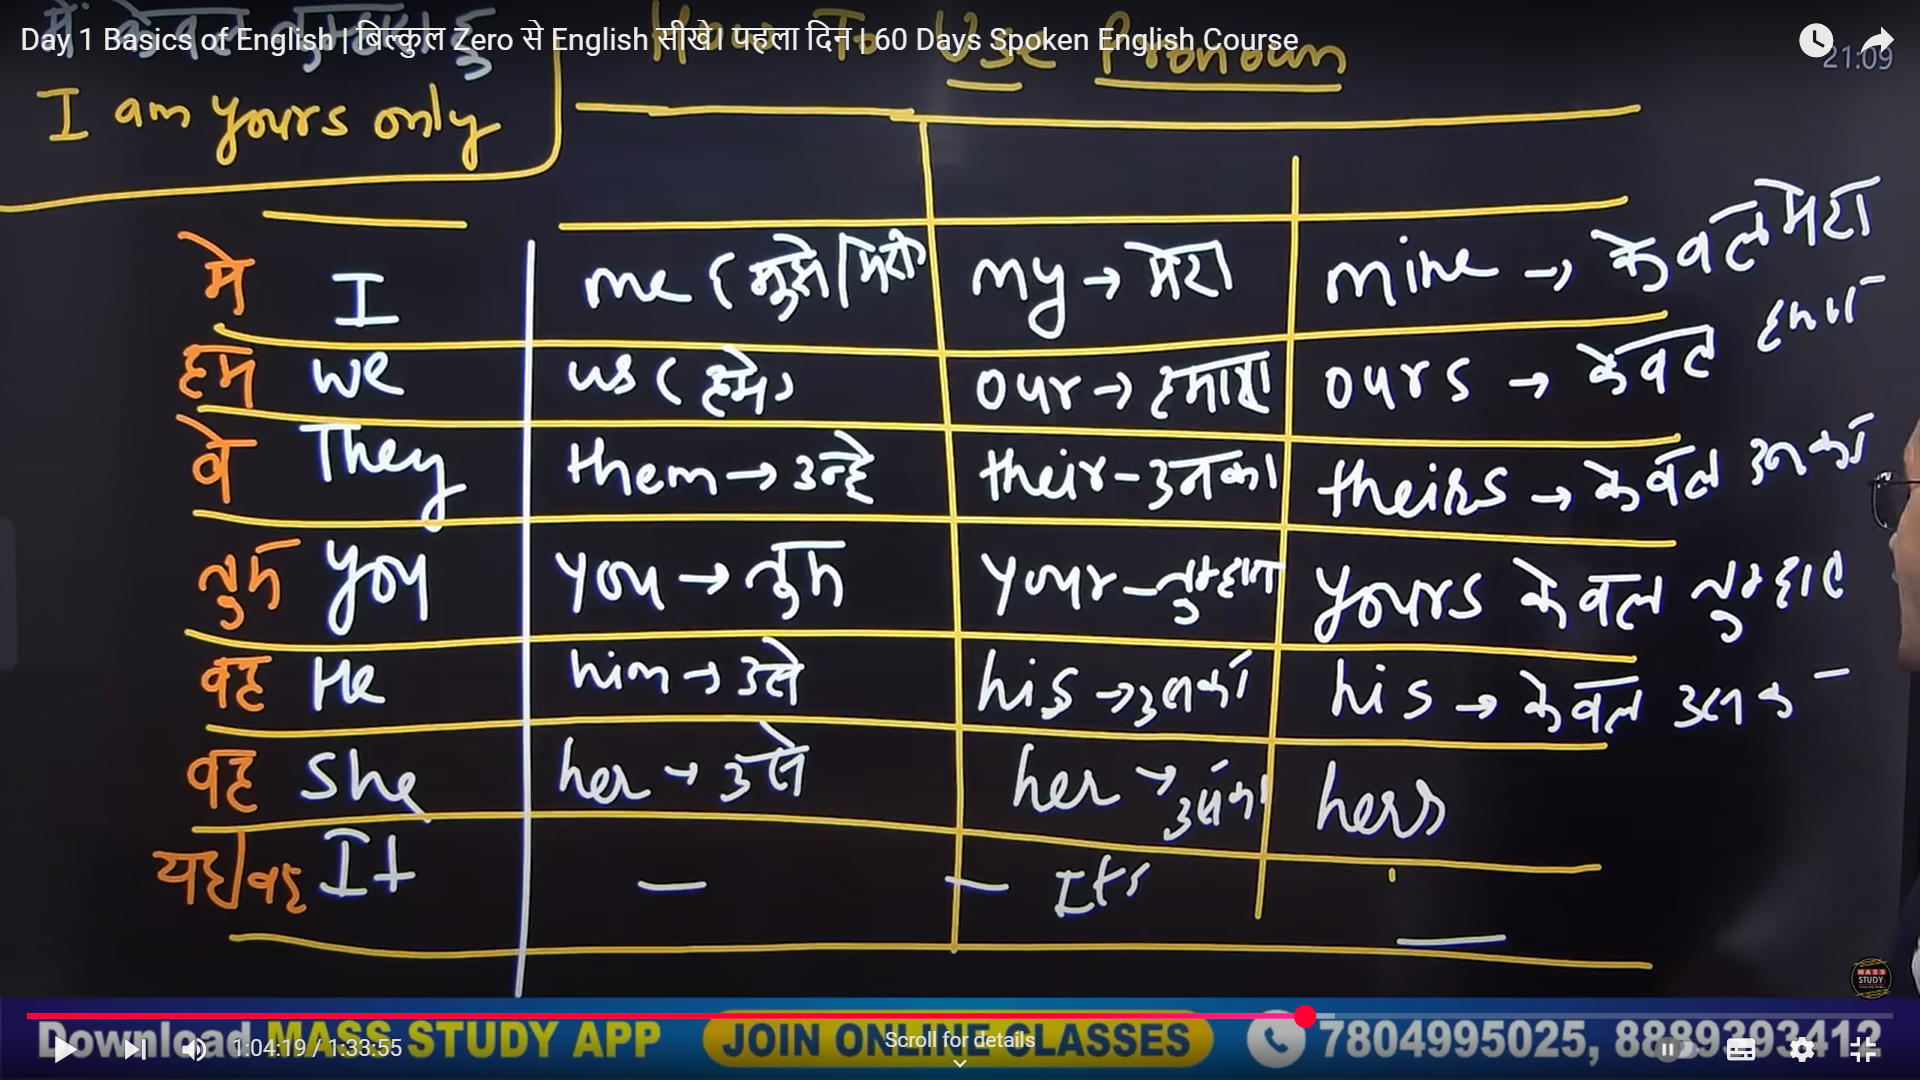 Day 1 Basics of English | बिल्कुल Zero से English सीखे। पहला दिन। 60 Days Spoken English Course
How To Use Pronoun
21:09
I am yours only
मे I me (मुझे/मेरी) my → मेरा mine → केवल मेरा
हम we us (हमे) our → हमारा ours → केवल हमारा
वे They them → उन्हे their - उनका theirs → केवल उनका
तुम you you → तुम your - तुम्हारा yours केवल तुम्हारा
वह He him → उसे his → उसका his → केवल उसका
वह She her → उसे her → उसका hers
यह/वह It — — Its —
MASS STUDY
Download MASS STUDY APP JOIN ONLINE CLASSES 7804995025, 8889393412
Scroll for details
1:04:19 / 1:33:55